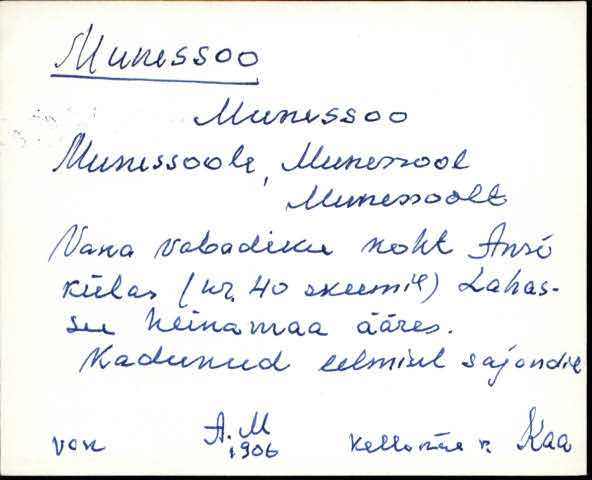 Munessoo
Munessoo
Munessoole, Munessool
Munessoolt
Vana vabadiku koht Ansi
külas (nr. 40 skeemil) Lahas-
suu heinamaa ääres.
Kadunud eelmisel sajandil
von A. M Kaa
1906